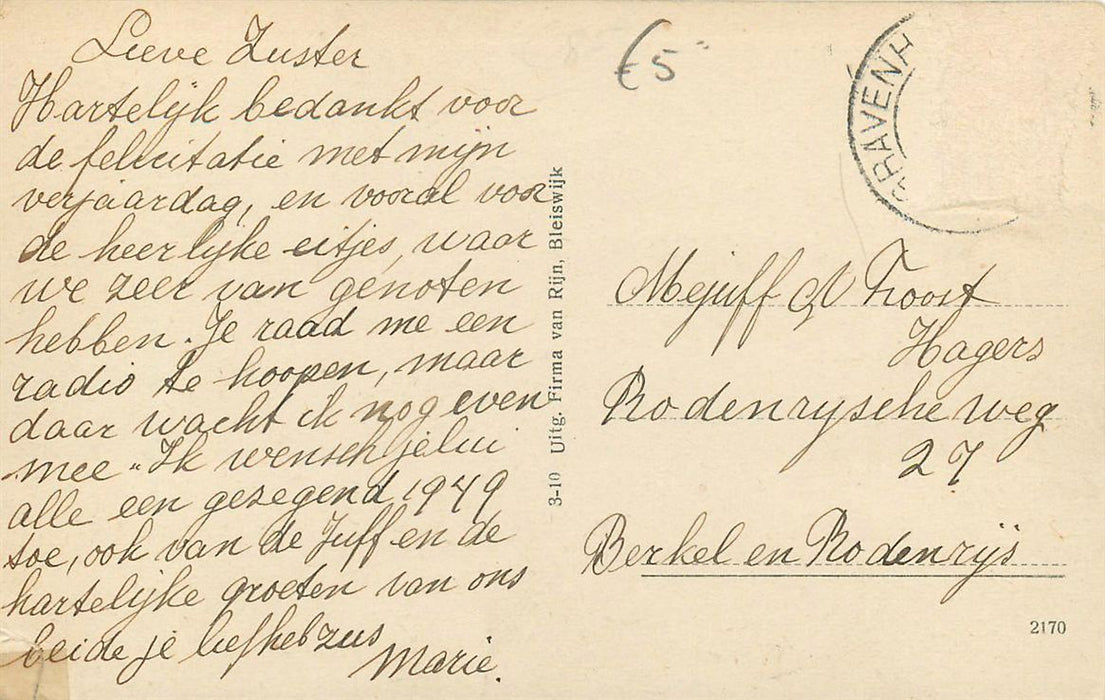 Lieve Zuster
Hartelijk bedankt voor
de felicitatie met mijn
verjaardag, en vooral voor
de heerlijke eitjes, waar
we zeer van genoten
hebben. Je raad me een
radio te koopen, maar
daar wacht ik nog even
mee. Ik wensch jelui
alle een gezegend 1949
toe, ook van de Juff en de
hartelijke groeten van ons
beide je liefheb zus
Marie.
3-10 Uitg. Firma van Rijn, Bleiswijk
€5
GRAVENH
Mejuff A Troost
Hagers
Rodenrysche weg
27
Berkel en Rodenrijs
2170